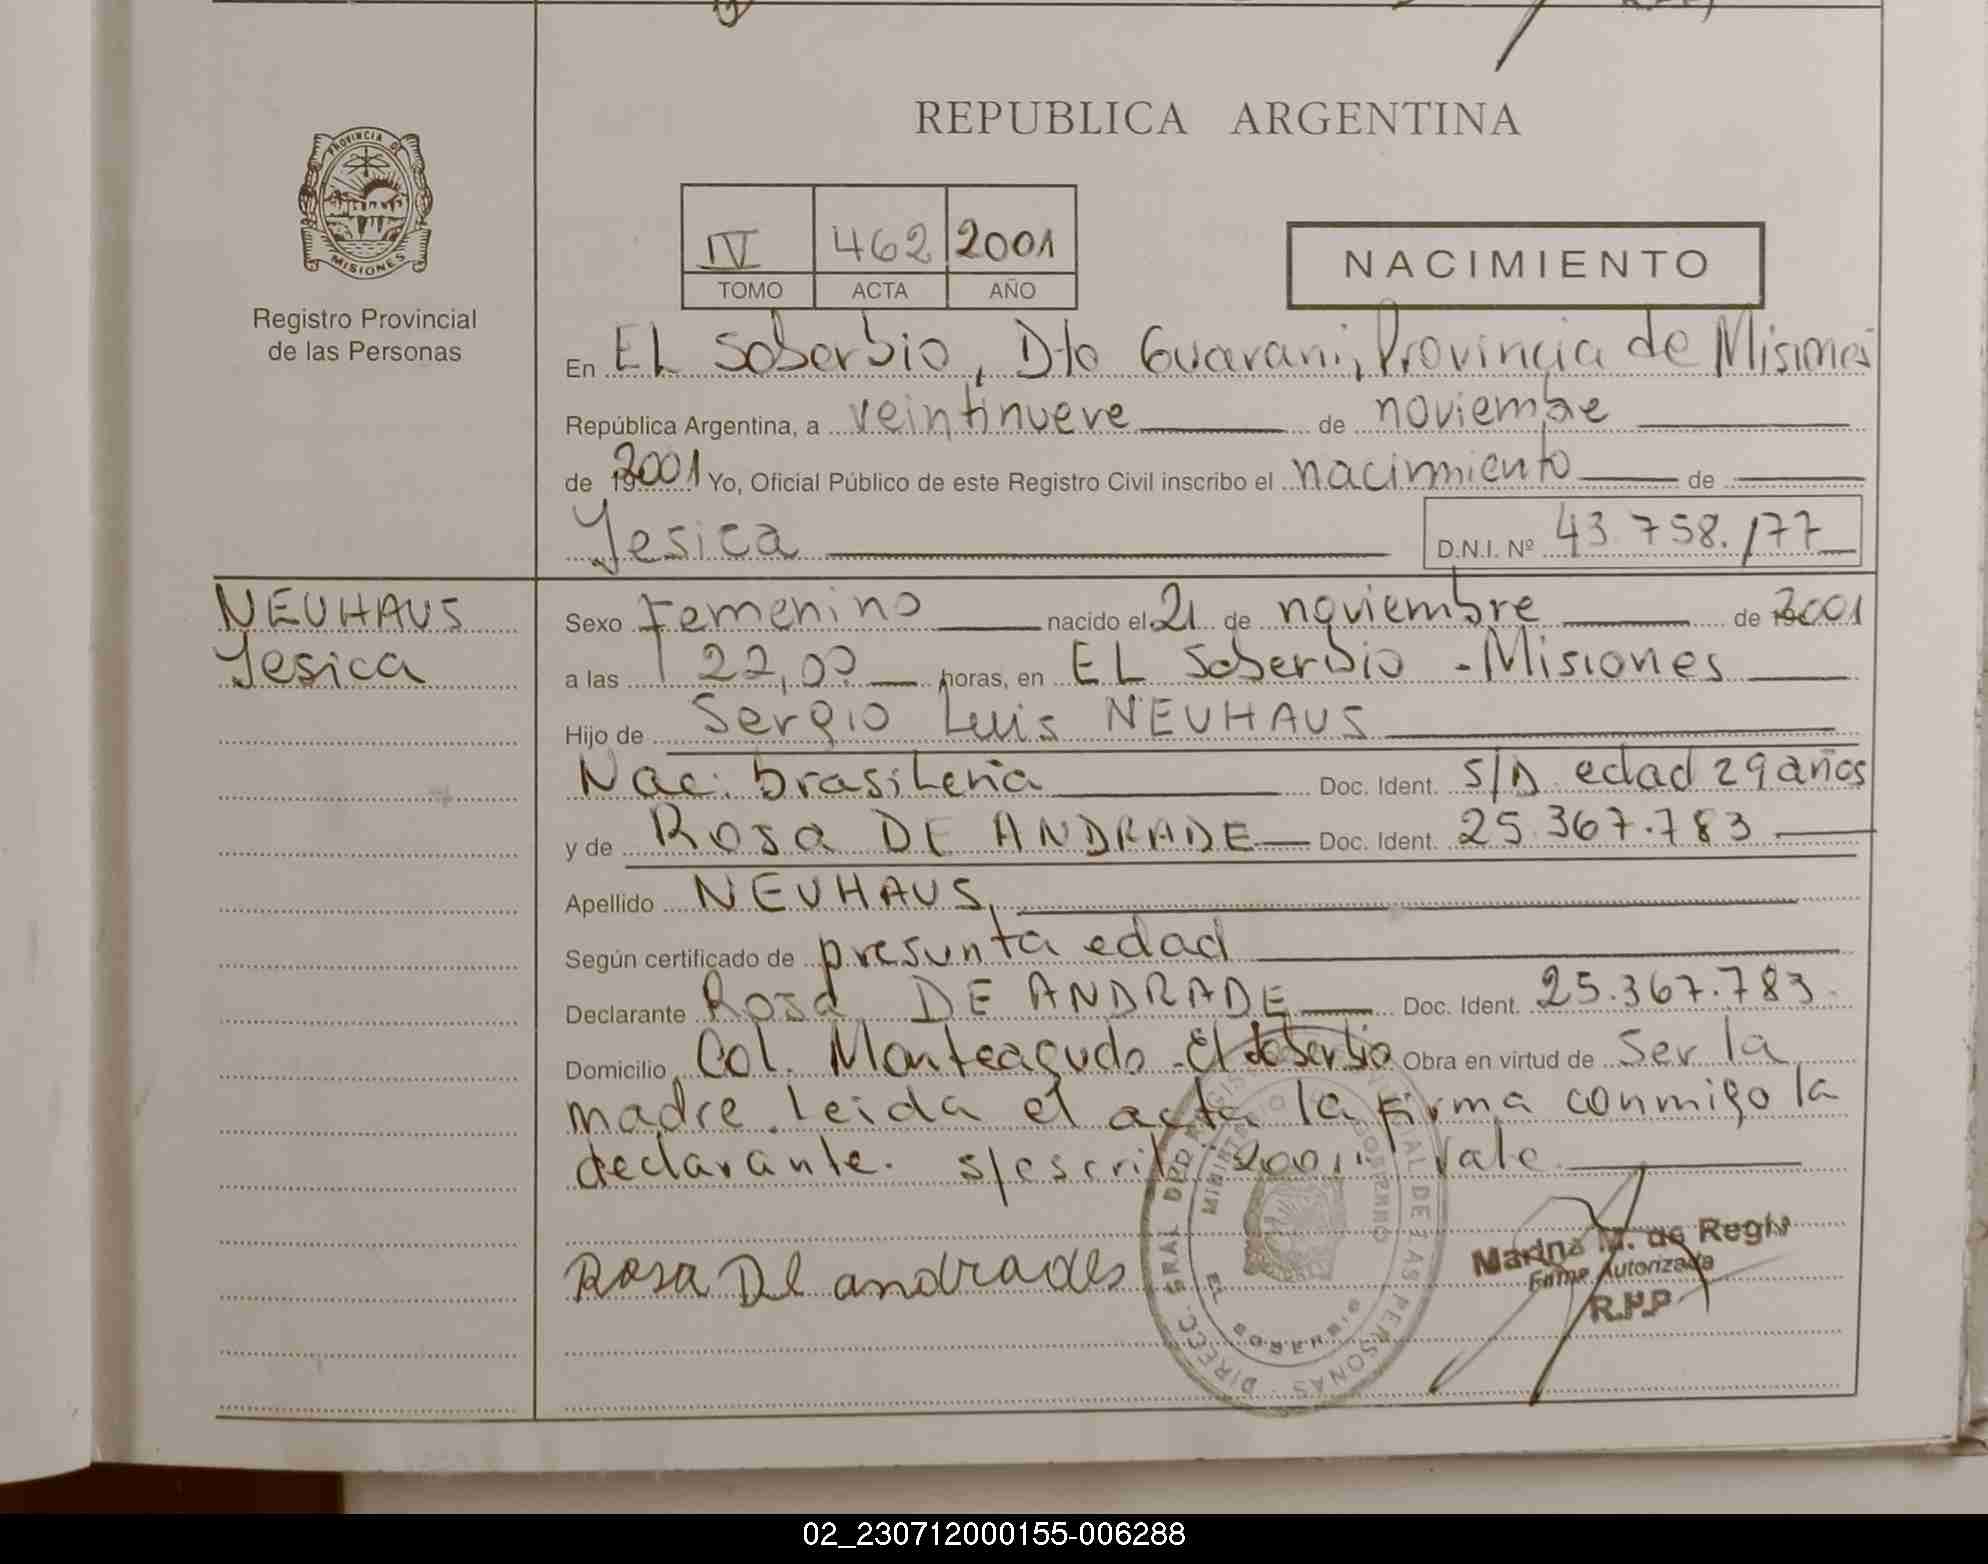 REPUBLICA ARGENTINA
PROVINCIA DE
MISIONES
Registro Provincial
de las Personas
IV 462 2001
TOMO ACTA AÑO
NACIMIENTO
En EL Soberbio, Dto Guarani, Provincia de Misiones
República Argentina, a veintinueve de noviembre
de 2001 Yo, Oficial Público de este Registro Civil inscribo el nacimiento de
Yesica D.N.I. Nº 43.758.177
NEUHAUS
Yesica
Sexo Femenino nacido el 21 de noviembre de 2001
a las 22,00 horas, en EL Soberbio - Misiones
Hijo de Sergio Luis NEUHAUS
Nac: brasileña Doc. Ident. S/D edad 29 años
y de Rosa DE ANDRADE Doc. Ident. 25.367.783
Apellido NEUHAUS
Según certificado de presunta edad
Declarante Rosa DE ANDRADE Doc. Ident. 25.367.783
Domicilio Col. Monteagudo - El Soberbio Obra en virtud de Ser la
madre. Leida el acta la firma conmigo la
declarante. s/escrit "2001" Vale
Rosa De andrades
Marina M. de
Firma Autorizada
R.P.P.
02_230712000155-006288